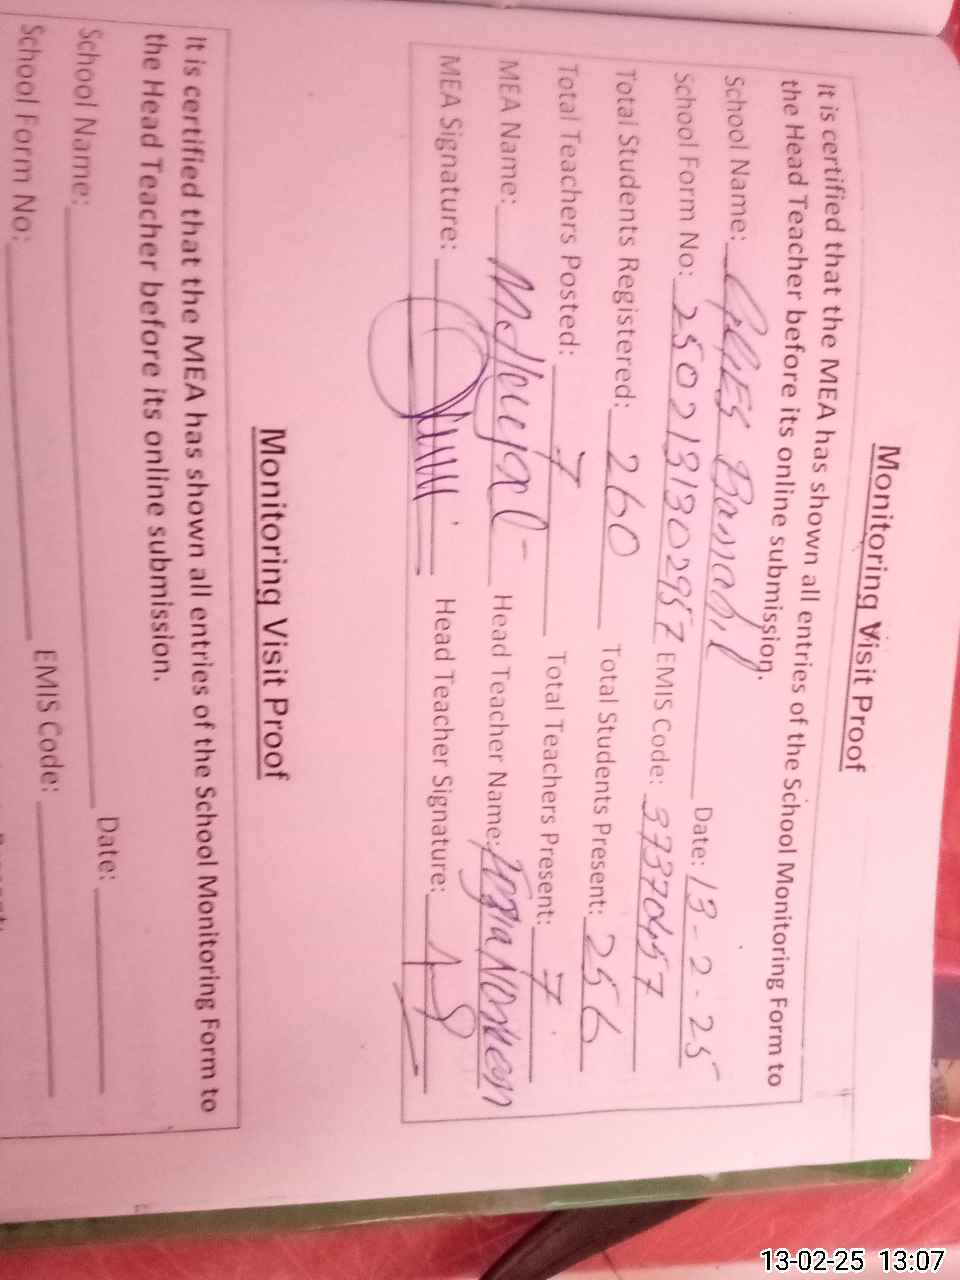 Monitoring Visit Proof
It is certified that the MEA has shown all entries of the School Monitoring Form to
the Head Teacher before its online submission.
School Name: GGES Date: 13-2-25
School Form No: 2502131302957 EMIS Code: 37370457
Total Students Registered: 260 Total Students Present: 256
Total Teachers Posted: 7 Total Teachers Present: 7
MEA Name: Head Teacher Name:
MEA Signature: Head Teacher Signature:
Monitoring Visit Proof
It is certified that the MEA has shown all entries of the School Monitoring Form to
the Head Teacher before its online submission.
School Name: Date:
School Form No: EMIS Code:
13-02-25 13:07